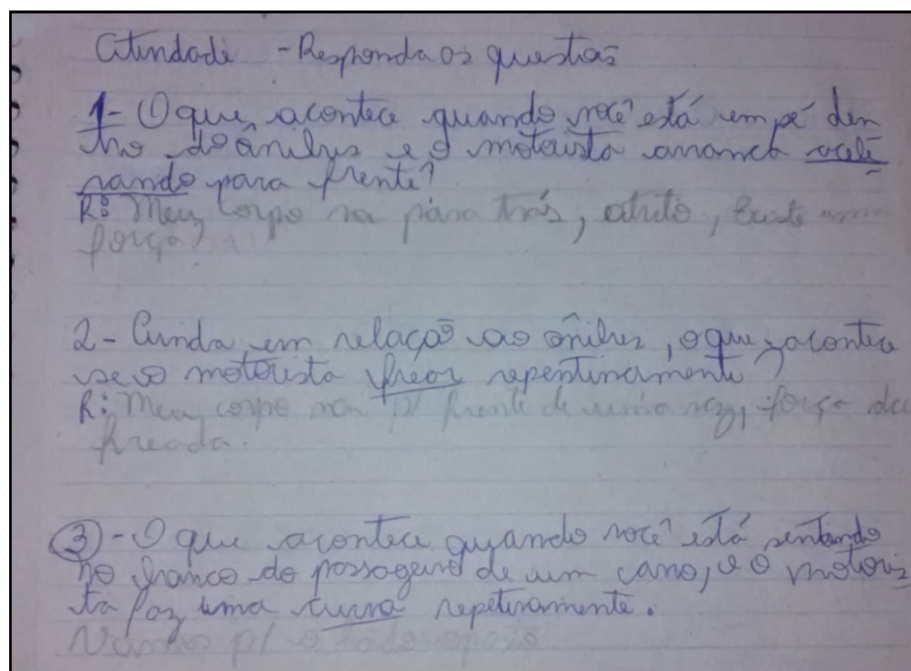 Atividade - Responda as questões
1- O que acontece quando você está em pé den
tro do ônibus e o motorista arranca acele
rando para frente?
R: Meu corpo vai para trás, atrito, Existe uma
força?
2- Ainda em relação ao ônibus, o que acontece
se o motorista frear repentinamente?
R: Meu corpo vai p/ frente de uma vez, força da
freada.
3 - O que acontece quando você está sentando
no banco do passageiro de um carro, e o motoris
ta faz uma curva repetinamente.
Vamos p/ o lado oposto